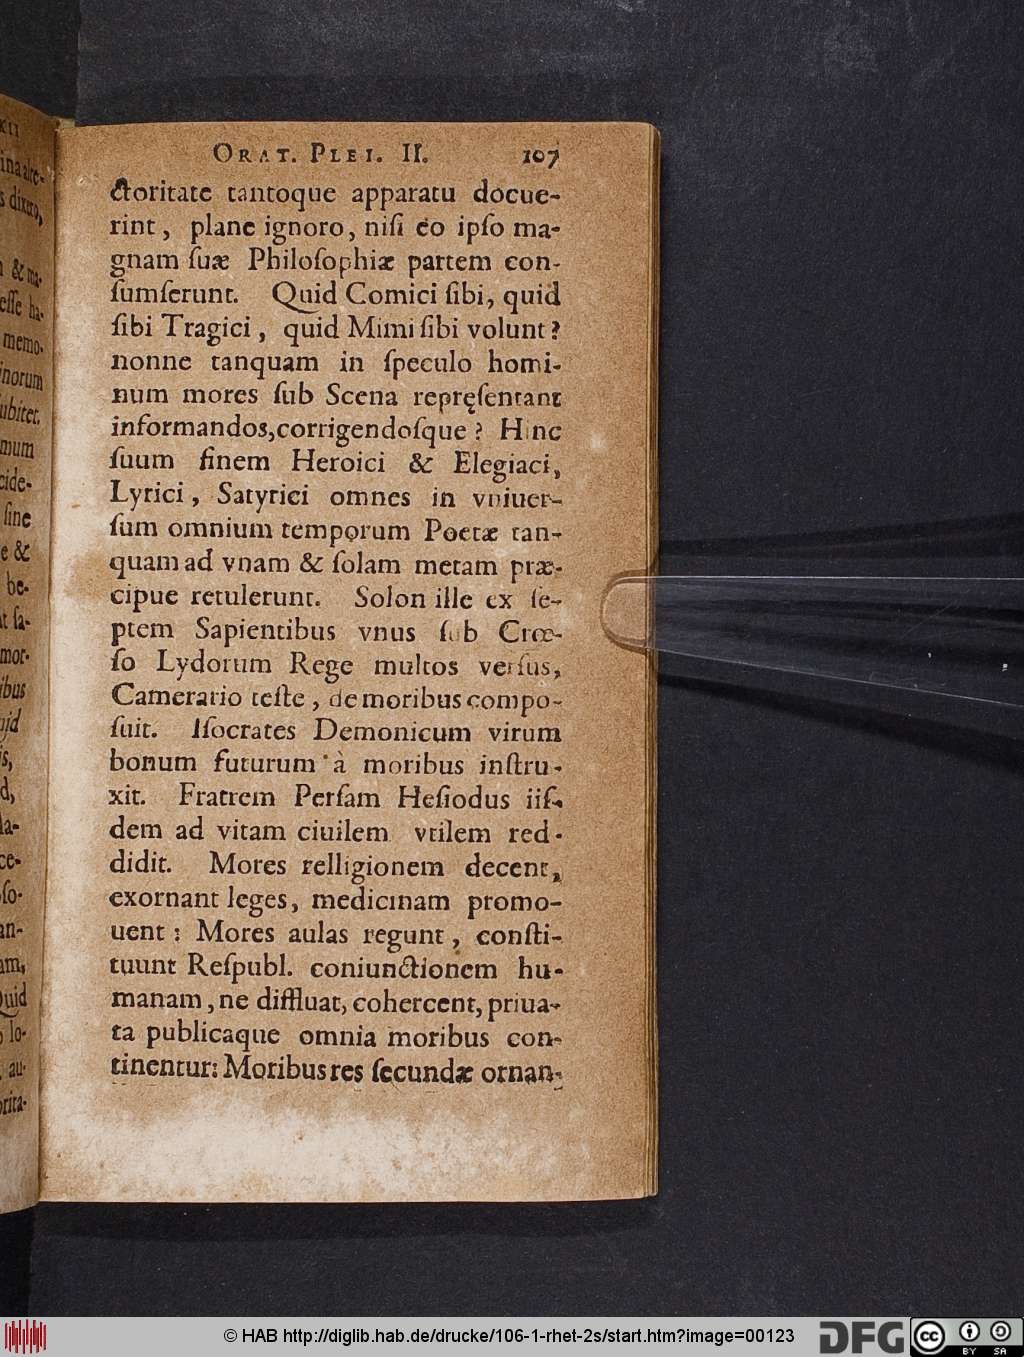 ORAT. PLEI. II. 107
ctoritate tantoque apparatu docue-
rint, plane ignoro, niſi eo ipſo ma-
gnam ſuæ Philoſophiæ partem con-
ſumſerunt. Quid Comici ſibi, quid
ſibi Tragici, quid Mimi ſibi volunt?
nonne tanquam in ſpeculo homi-
num mores ſub Scena repręſentant
informandos, corrigendoſque? Hinc
ſuum finem Heroici & Elegiaci,
Lyrici, Satyrici omnes in vniuer-
ſum omnium temporum Poetæ tan-
quam ad vnam & ſolam metam præ-
cipue retulerunt. Solon ille ex ſe-
ptem Sapientibus vnus ſub Crœ-
ſo Lydorum Rege multos verſus,
Camerario teſte, de moribus compo-
ſuit. Iſocrates Demonicum virum
bonum futurum à moribus inſtru-
xit. Fratrem Perſam Heſiodus iiſ-
dem ad vitam ciuilem vtilem red-
didit. Mores relligionem decent,
exornant leges, medicinam promo-
uent: Mores aulas regunt, conſti-
tuunt Reſpubl. coniunctionem hu-
manam, ne diffluat, cohercent, priua-
ta publicaque omnia moribus con-
tinentur: Moribus res ſecundæ ornan-
© HAB http://diglib.hab.de/drucke/106-1-rhet-2s/start.htm?image=00123
DFG
cc BY SA